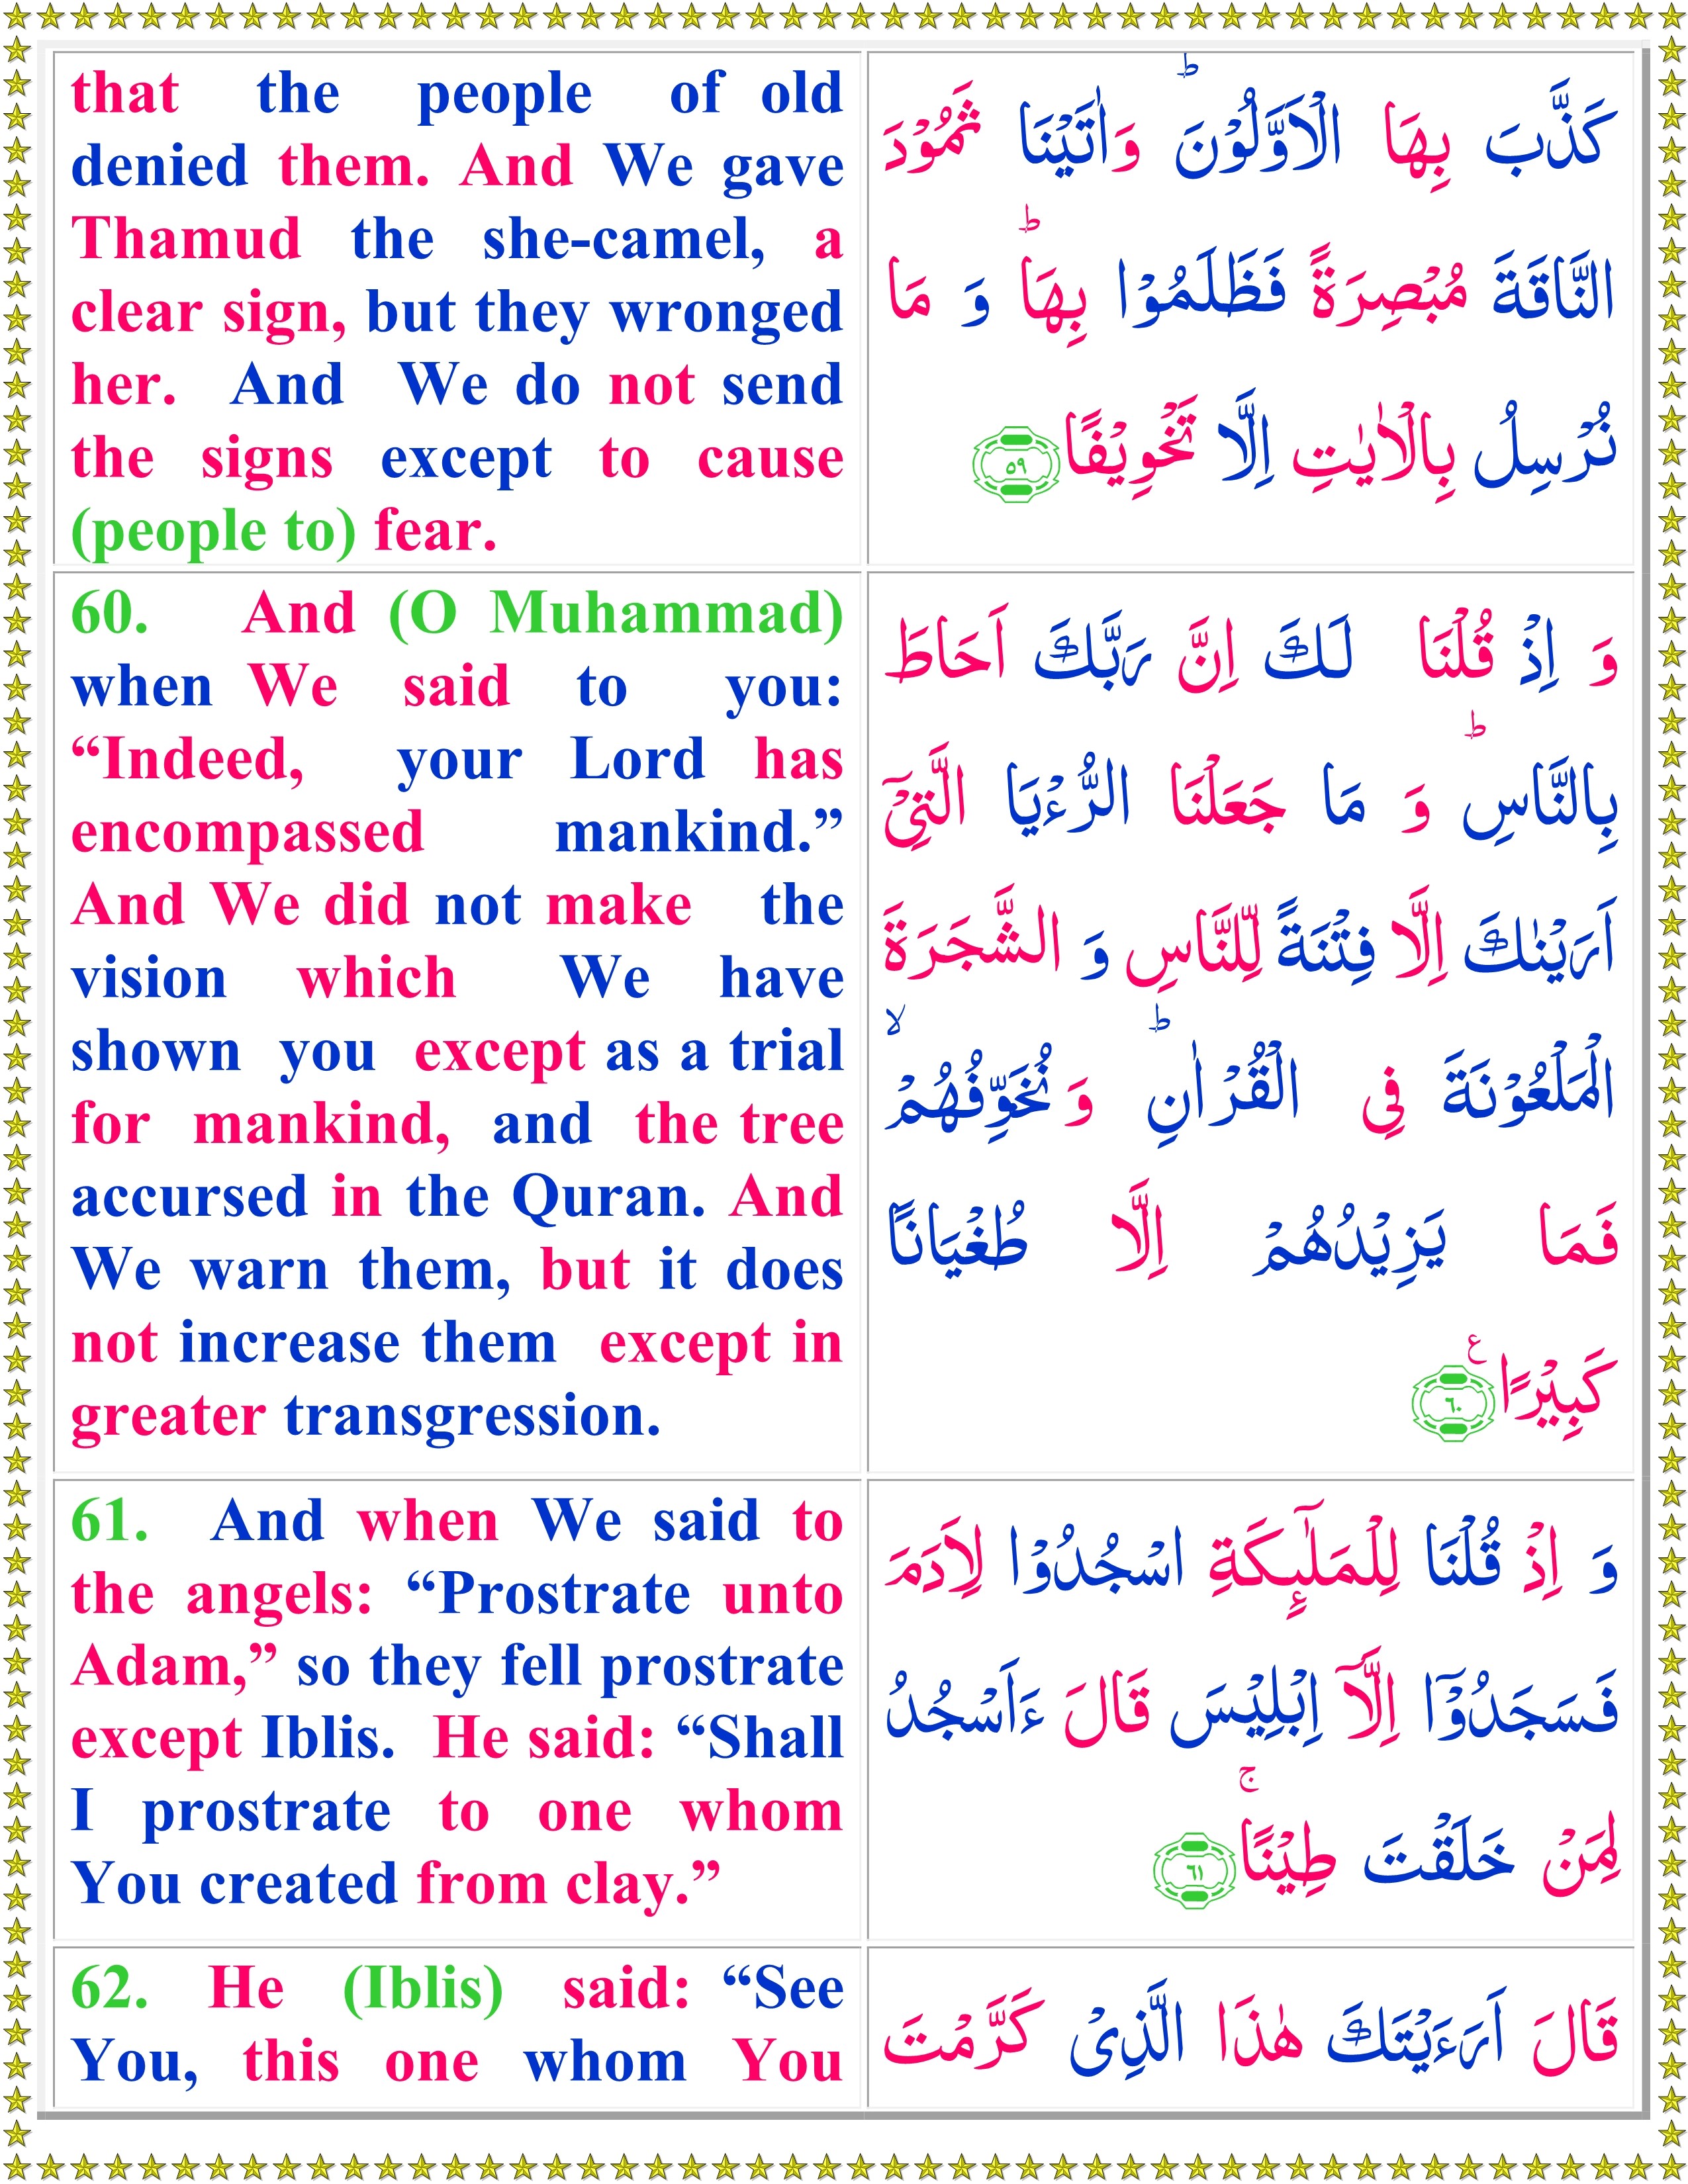 that the people of old
denied them. And We gave
Thamud the she-camel, a
clear sign, but they wronged
her. And We do not send
the signs except to cause
(people to) fear.
كَذَّبَ بِهَا الْاَوَّلُوْنَ ؕ وَاٰتَيْنَا ثَمُوْدَ
النَّاقَةَ مُبْصِرَةً فَظَلَمُوْا بِهَا ؕ وَ مَا
نُرْسِلُ بِالْاٰيٰتِ اِلَّا تَخْوِيْفًا ٥٩
60. And (O Muhammad)
when We said to you:
“Indeed, your Lord has
encompassed mankind.”
And We did not make the
vision which We have
shown you except as a trial
for mankind, and the tree
accursed in the Quran. And
We warn them, but it does
not increase them except in
greater transgression.
وَ اِذْ قُلْنَا لَكَ اِنَّ رَبَّكَ اَحَاطَ
بِالنَّاسِ ؕ وَ مَا جَعَلْنَا الرُّءْيَا الَّتِىْۤ
اَرَيْنٰكَ اِلَّا فِتْنَةً لِّلنَّاسِ وَ الشَّجَرَةَ
الْمَلْعُوْنَةَ فِى الْقُرْاٰنِ ؕ وَ نُخَوِّفُهُمْ ۙ
فَمَا يَزِيْدُهُمْ اِلَّا طُغْيَانًا
كَبِيْرًا ع ٦٠
61. And when We said to
the angels: “Prostrate unto
Adam,” so they fell prostrate
except Iblis. He said: “Shall
I prostrate to one whom
You created from clay.”
وَ اِذْ قُلْنَا لِلْمَلٰۤٮِٕكَةِ اسْجُدُوْا لِاٰدَمَ
فَسَجَدُوْۤا اِلَّاۤ اِبْلِيْسَ قَالَ ءَاَسْجُدُ
لِمَنْ خَلَقْتَ طِيْنًا ۚ ٦١
62. He (Iblis) said: “See
You, this one whom You
قَالَ اَرَءَيْتَكَ هٰذَا الَّذِىْ كَرَّمْتَ